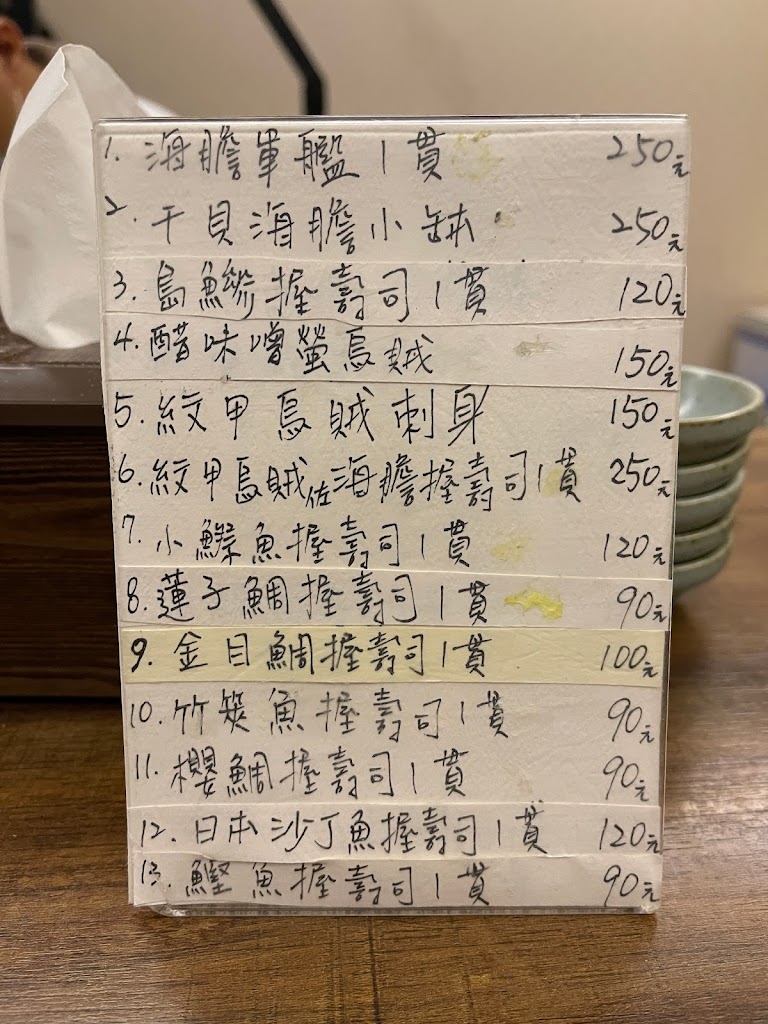 1. 海膽軍艦1貫 250元
2. 干貝海膽小缽 250元
3. 島鯵握壽司1貫 120元
4. 醋味噌螢烏賊 150元
5. 紋甲烏賊刺身 150元
6. 紋甲烏賊佐海膽握壽司1貫 250元
7. 小鰶魚握壽司1貫 120元
8. 蓮子鯛握壽司1貫 90元
9. 金目鯛握壽司1貫 100元
10. 竹筴魚握壽司1貫 90元
11. 櫻鯛握壽司1貫 90元
12. 日本沙丁魚握壽司1貫 120元
13. 鰹魚握壽司1貫 90元